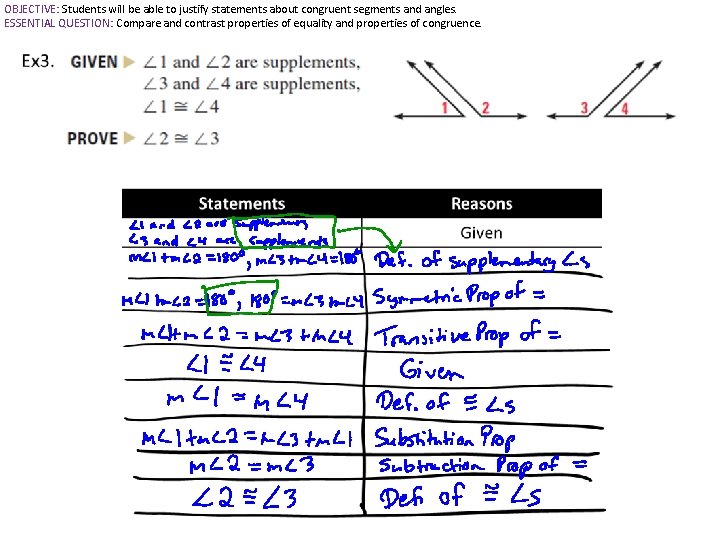 OBJECTIVE: Students will be able to justify statements about congruent segments and angles.
ESSENTIAL QUESTION: Compare and contrast properties of equality and properties of congruence.
Ex3. GIVEN ▶ ∠1 and ∠2 are supplements,
∠3 and ∠4 are supplements,
∠1 ≅ ∠4
PROVE ▶ ∠2 ≅ ∠3
1 2 3 4
Statements Reasons
∠1 and ∠2 are supplements
∠3 and ∠4 are supplements Given
m∠1+m∠2=180°, m∠3+m∠4=180° Def. of supplementary ∠s
m∠1+m∠2=180°, 180°=m∠3+m∠4 Symmetric Prop of =
m∠1+m∠2=m∠3+m∠4 Transitive Prop of =
∠1≅∠4 Given
m∠1=m∠4 Def. of ≅ ∠s
m∠1+m∠2=m∠3+m∠1 Substitution Prop
m∠2=m∠3 Subtraction Prop of =
∠2≅∠3 Def of ≅ ∠s